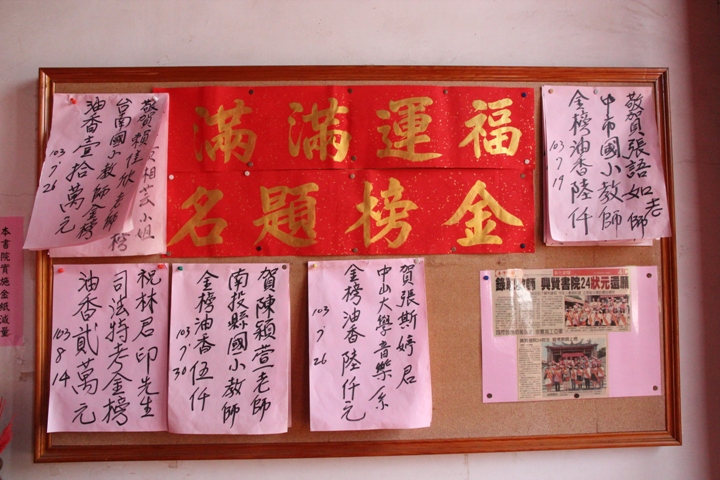 福運滿滿
金榜題名
敬賀張語如老師
中市國小教師
金榜油香陸仟
103
7
19
相芸小姐
榜
敬賀賴佳欣老師
台南國小教師金榜
油香壹拾萬元
103
7
26
興賢書院24狀元還願
賀張斯婷君
中山大學音樂系
金榜油香陸仟元
103
7
26
賀陳穎萱老師
南投縣國小教師
金榜油香伍仟
103
7
30
祝林君印先生
司法特考金榜
油香貳萬元
103
8
14
本書院實施金紙減量